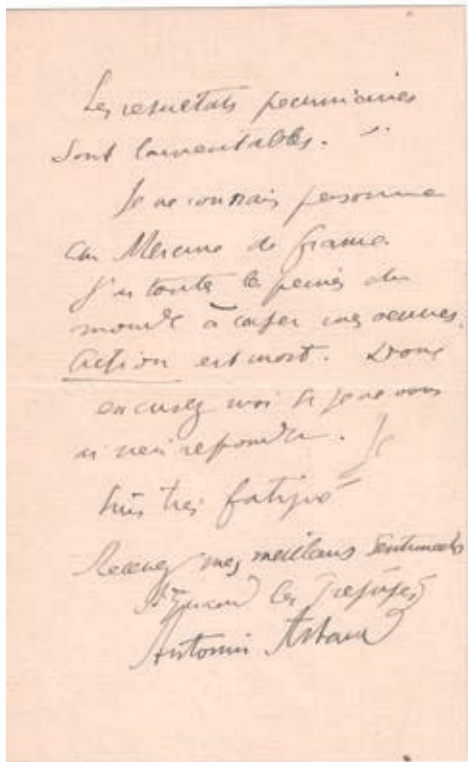 Les resultats pecuniaires
sont lamentables.
Je ne connais personne
au Mercure de France
J'ai toutes les peines du
monde à caser mes oeuvres.
Action est mort. Donc
excusez moi si je ne vous
ai rien repondu. Je
suis très fatigué
Recevez mes meilleurs sentiments
les
Antonin Artaud